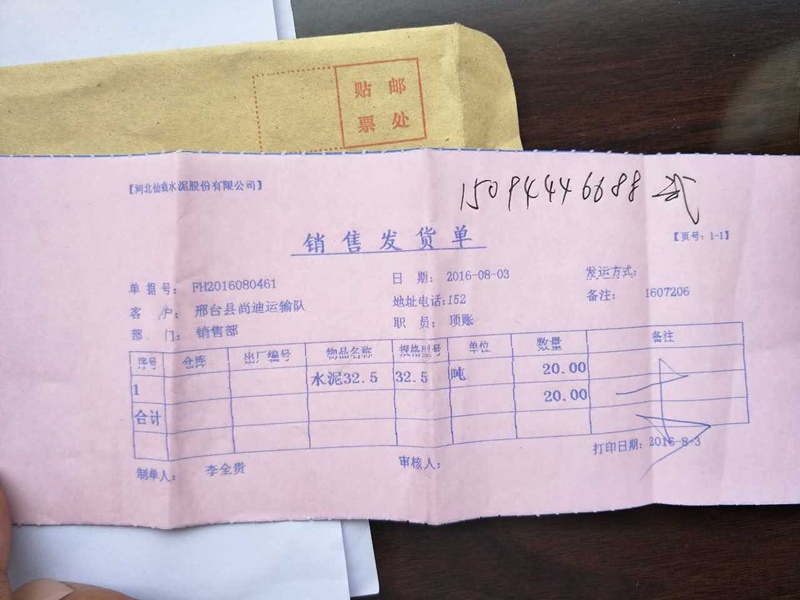 贴 邮
票 处
【河北仙翁水泥股份有限公司】
15094446688 武
销售发货单
【页号：1-1】
单据号： FH2016080461 日 期： 2016-08-03 发运方式：
客 户： 邢台县尚迪运输队 地址电话：152 备注： 1607206
部 门： 销售部 职 员： 顶账
序号 仓库 出厂编号 物品名称 规格型号 单位 数量 备注
1 水泥32.5 32.5 吨 20.00
合计 20.00
制单人： 李全贵 审核人： 打印日期：2016-8-3